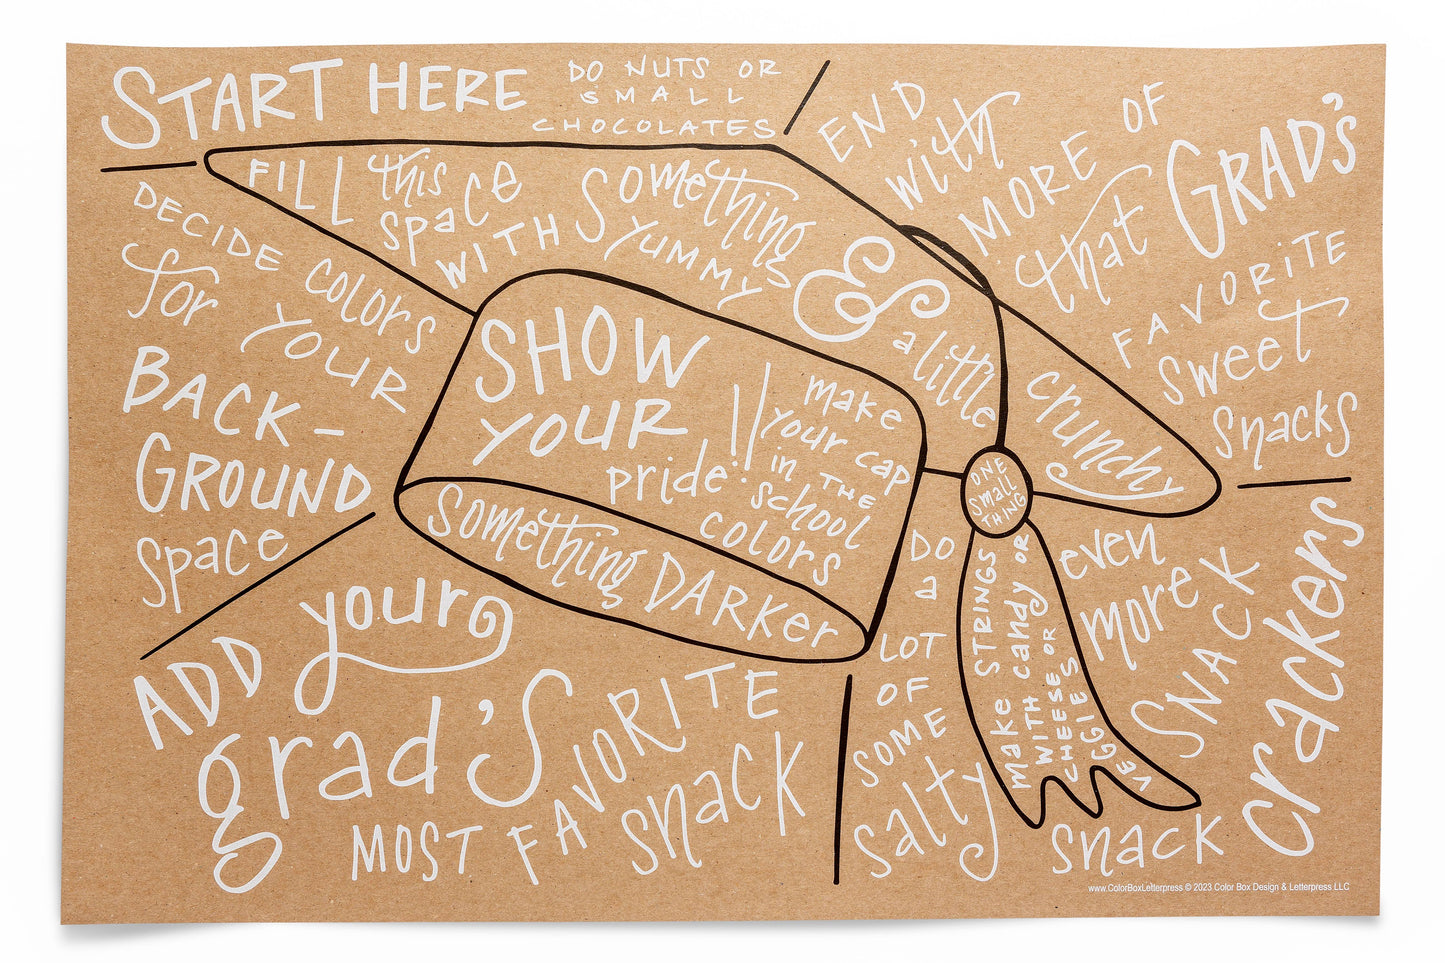 START HERE
DO NUTS OR
SMALL
CHOCOLATES
DECIDE COLORS
for YOUR
BACK-
GROUND
space
FILL this
space
WITH
Something
YUMMY
&
a little
crunchy
END
with
MORE OF
that GRAD'S
FAVORITE
sweet
snacks
SHOW
YOUR
pride!!
make
your cap
in THE
school
colors
Something DARKER
ONE
small
THING
make STRINGS
WITH candy OR
CHEESE OR
VEGGIES
ADD your
grad's
MOST FAVORITE
snack
DO
a
LOT
OF
SOME
salty
even
more
SNACK
crackers
snack
www.ColorBoxLetterpress © 2023 Color Box Design & Letterpress LLC